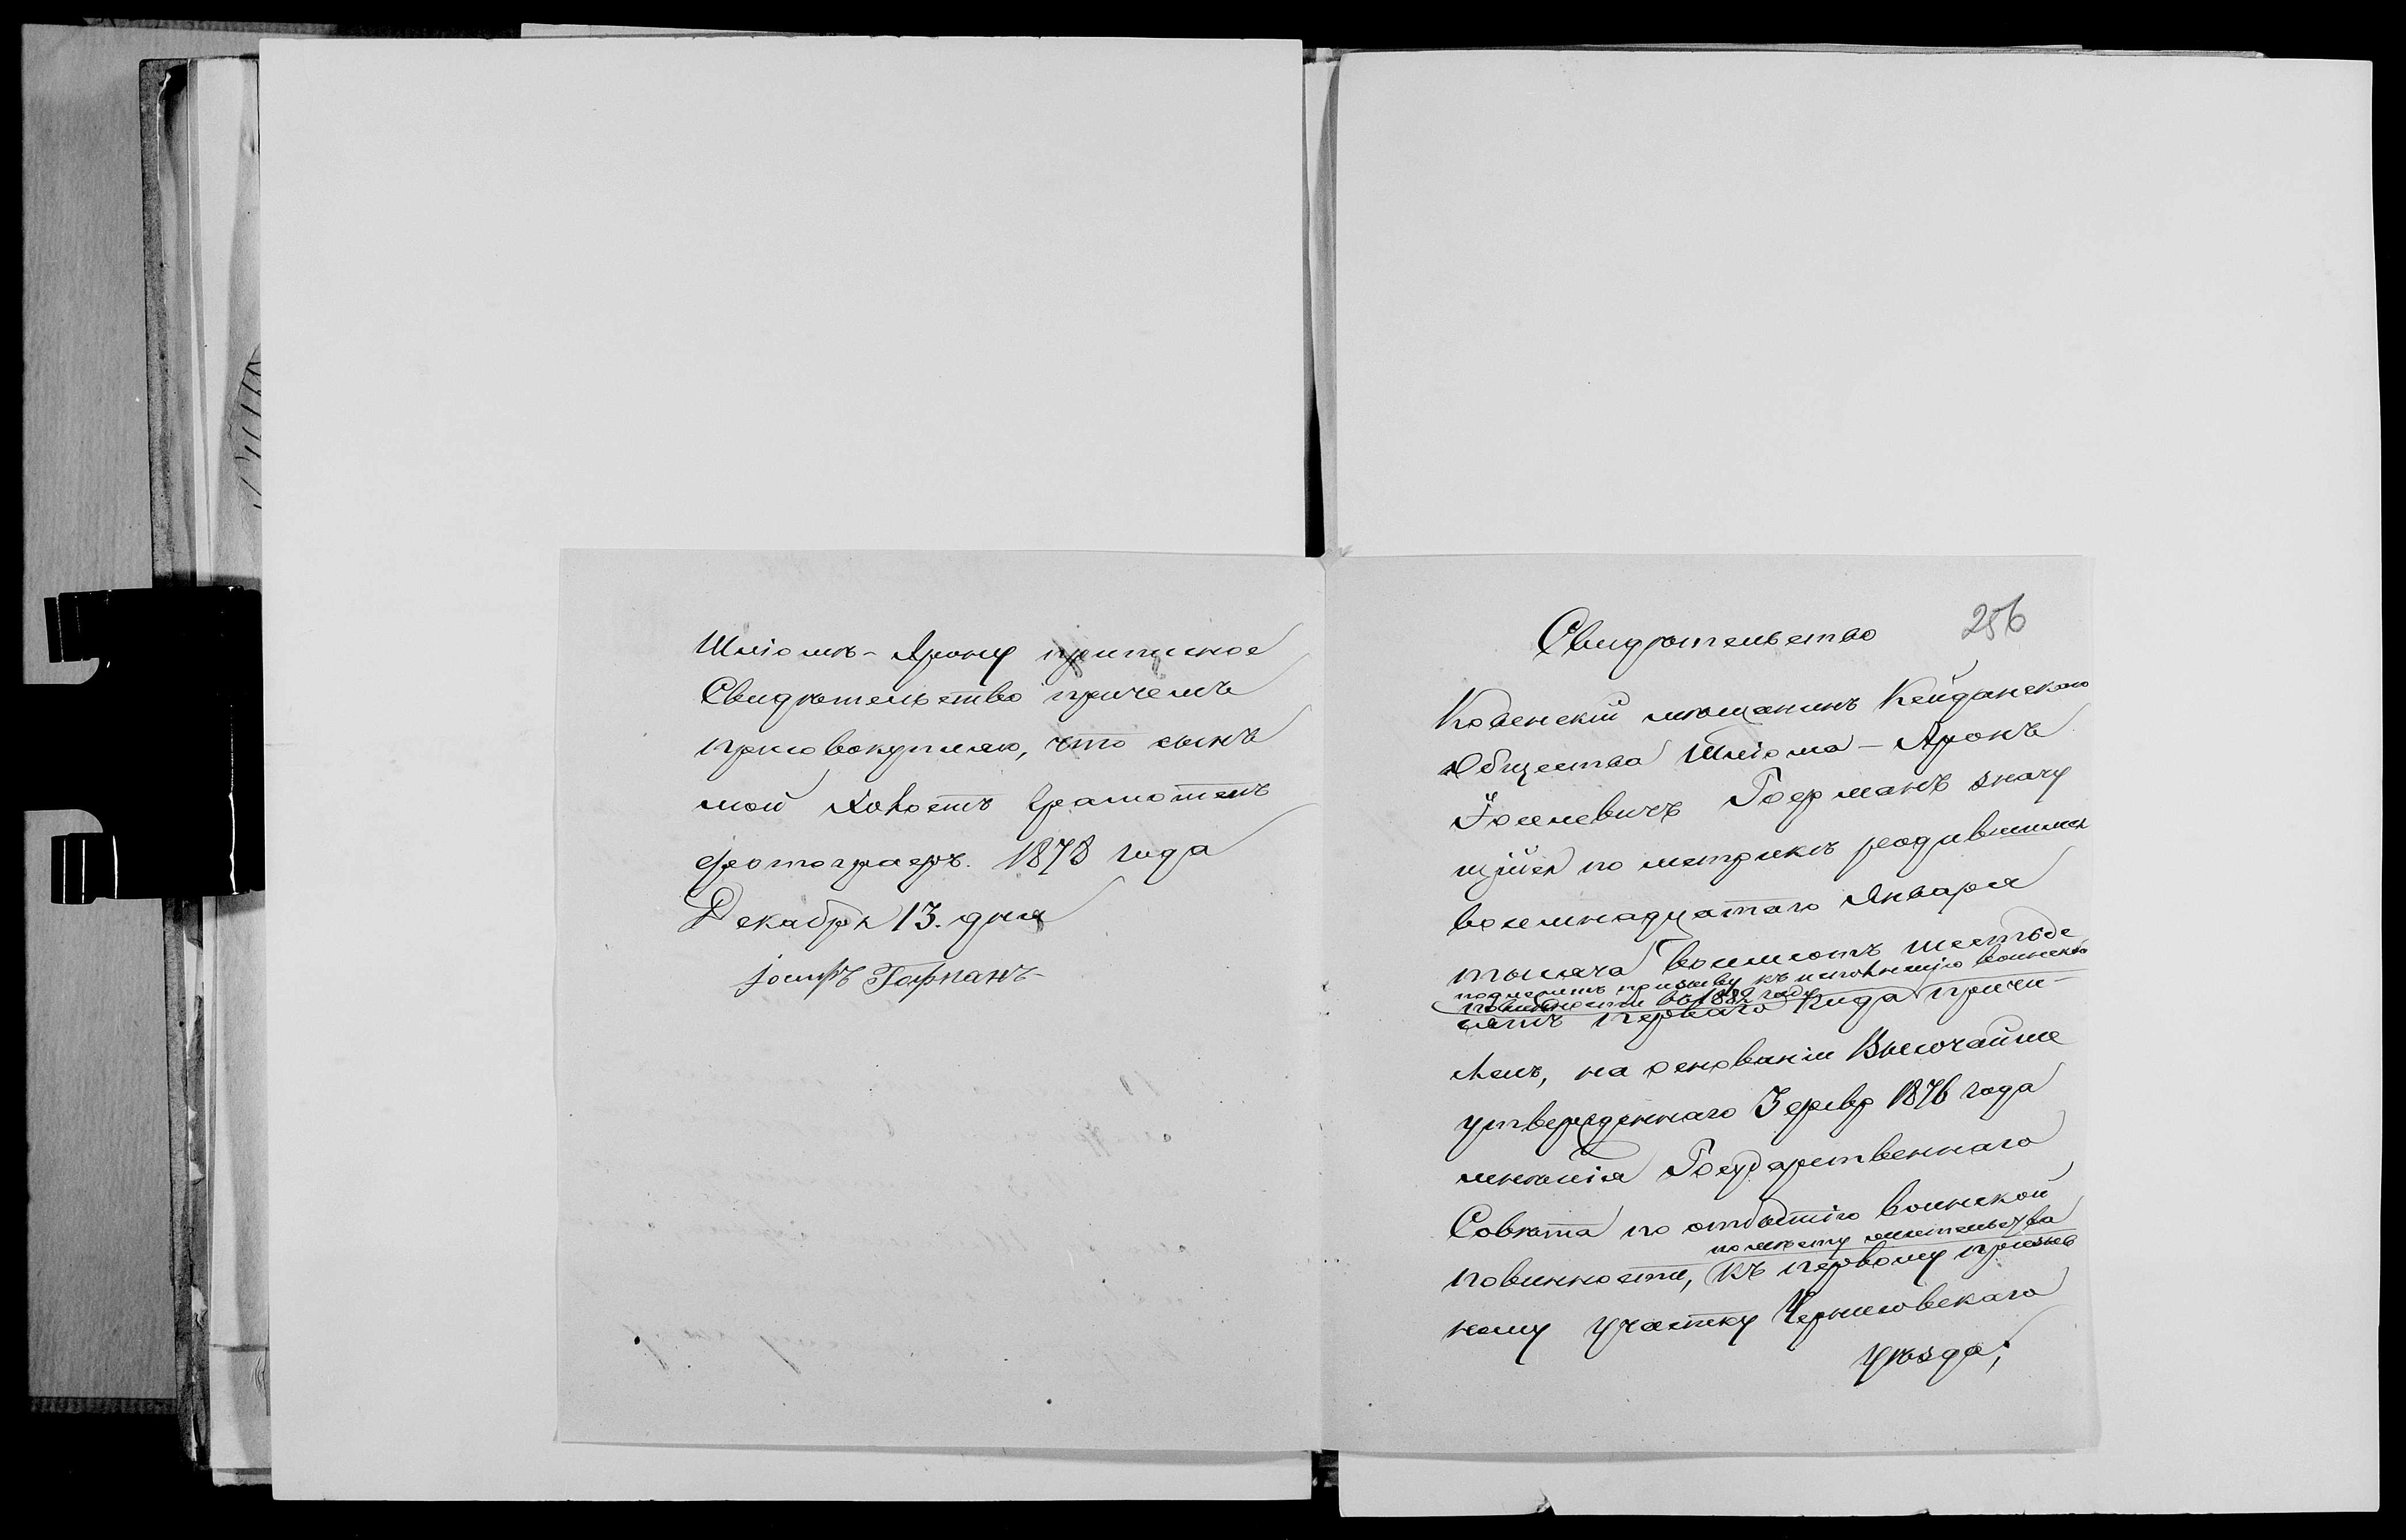 Шліомѣ-Арону приписное
Свидѣтельство причемъ
присовокупляю, что сынъ
мой холостъ грамотенъ
фотографъ. 1878 года
Декабря 13. дня
Іосифъ Гофманъ
256
Свидѣтельство
Ковенскій мѣщанинъ Кейданскаго
Общества Шліома-Аронъ
Іоселевичъ Гофманъ значу
щійся по метрикѣ родившимся
восемнадцатаго Января
тысяча восемсотъ шестьде
подлежитъ призыву къ исполненію воинской
повинности въ 1882 году
сятъ перваго года причи-
сленъ, на основаніи Высочайше
утвержденнаго 3 февр 1876 года
мнѣнія Государственнаго
Совѣта по отбытію воинской
по мѣсту жительства
повинности, къ первому призыв
ному участку Черниговскаго
уѣзда;